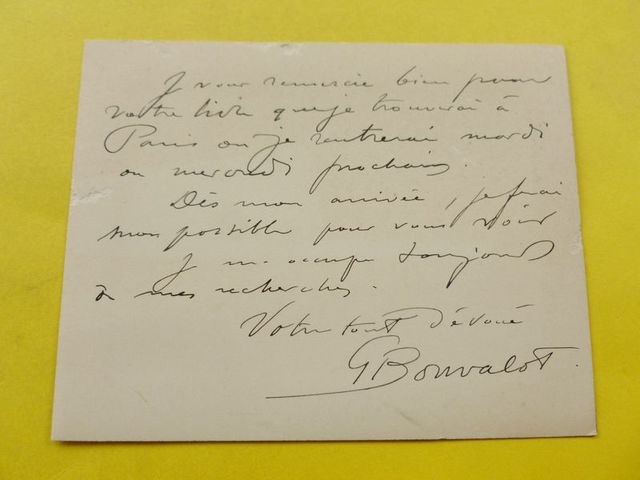 Je vous remercie bien pour
votre livre que je trouverai à
Paris où je rentrerai mardi
ou mercredi prochain.
Dès mon arrivée, je ferai
mon possible pour vous voir
Je m'occupe toujours
de mes recherches.
Votre tout dévoué
G Bonvalot.